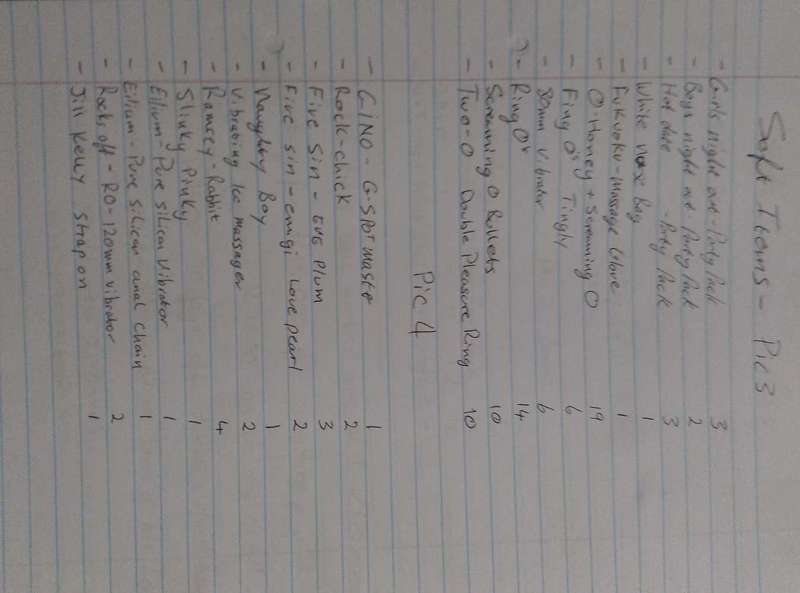 Soft Items - Pic 3
- Girls night out - Party Pack 3
- Boys night out - Party Pack 2
- Hot date - Party Pack 3
- White Box Bag 1
- Fukuoku - Massage Glove 1
- O Honey + Screaming O 19
- Fing O's Tingly 6
- 80mm Vibrator 6
- Ring O's 14
- Screaming O Bullets 10
- Two-O Double Pleasure Ring 10
Pic 4
- GINO - G-Spot Master 1
- Rock-chick 2
- Five Sin - eve Plum 3
- Five sin - emigi Love pearl 2
- Naughty Boy 1
- Vibrating Ice massager 2
- Ramsey - Rabbit 4
- Slinky Pinky 1
- Ellium - Pure silicon Vibrator 1
- Ellium - Pure silicon anal Chain 1
- Rocks off - RO-120mm vibrator 2
- Jill Kelly Strap on 1